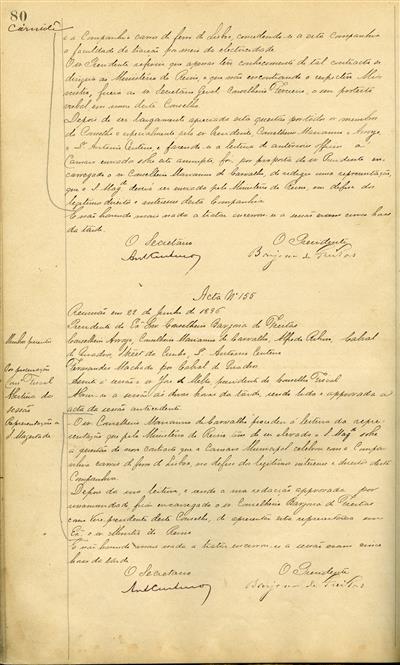 80
Carris de
e a Companhia carris de ferro de Lisboa, concedendo-se a esta Companhia
a faculdade da tracção por meio de electricidade.
O sr Presidente referiu que apenas teve conhecimento de tal contracto se
dirigiu ao Ministerio do Reino, e que não encontrando o respectivo Minis
tro, fizera ao sr Secretario Geral Conselheiro Ferreira, o seu protesto
verbal em nome deste Conselho.
Depois de ser largamente apreciada esta questão por todos os membros
do Conselho e especialmente pelo sr Presidente, Conselheiro Marianno e Arroyo,
e Sr Antonio Centeno, e fazendo-se a leitura de anteriores officios á
Camara enviados sobre este assumpto foi por proposta do sr Presidente en-
carregado o sr Conselheiro Marianno de Carvalho, de redigir uma representação,
que a S. Magde deverá ser enviada pelo Ministerio do Reino, em defeza dos
legitimos direitos e interesses desta Companhia.
E não havendo mais nada a tratar encerrou-se a sessão eram cinco horas
da tarde.
O Secretario
O Presidente
Barjona de Freitas
Acta Nº 155
Reunião em 22 de junho de 1896
Presidente do Exmo Snr Conselheiro Barjona de Freitas
Membros presentes
Conselheiro Arroyo, Conselheiro Marianno de Carvalho, Alfredo Cabral
da Cunha, Sr. Antonio Centeno
Por procuração
Fernandes Machado por Cabral
Cons. Fiscal
Assistiu á sessão o sr de Mello, presidente do Conselho Fiscal
Abertura da
sessão
Abriu-se a sessão ás duas horas da tarde, sendo lida e approvada a
acta da sessão antecedente.
Representação a
S. Magestade
O sr Conselheiro Marianno de Carvalho procedeu á leitura da repre-
sentação que pelo Ministerio do Reino vae ser elevada a S. Magde sobre
a questão do novo contracto que a Camara Municipal celebrou com a Compa-
nhia carris de ferro de Lisboa, na defeza dos legitimos interesses e direitos desta
Companhia.
Depois da sua leitura, e sendo a sua redacção approvada por
unanimidade, foi encarregado o sr Conselheiro Barjona de Freitas
como vice-presidente deste Conselho, de apresentar esta representação a sua
Exa o sr Ministro do Reino
E não havendo mais nada a tratar encerrou-se a sessão eram cinco
horas da tarde
O Secretario
O Presidente
Barjona de Freitas